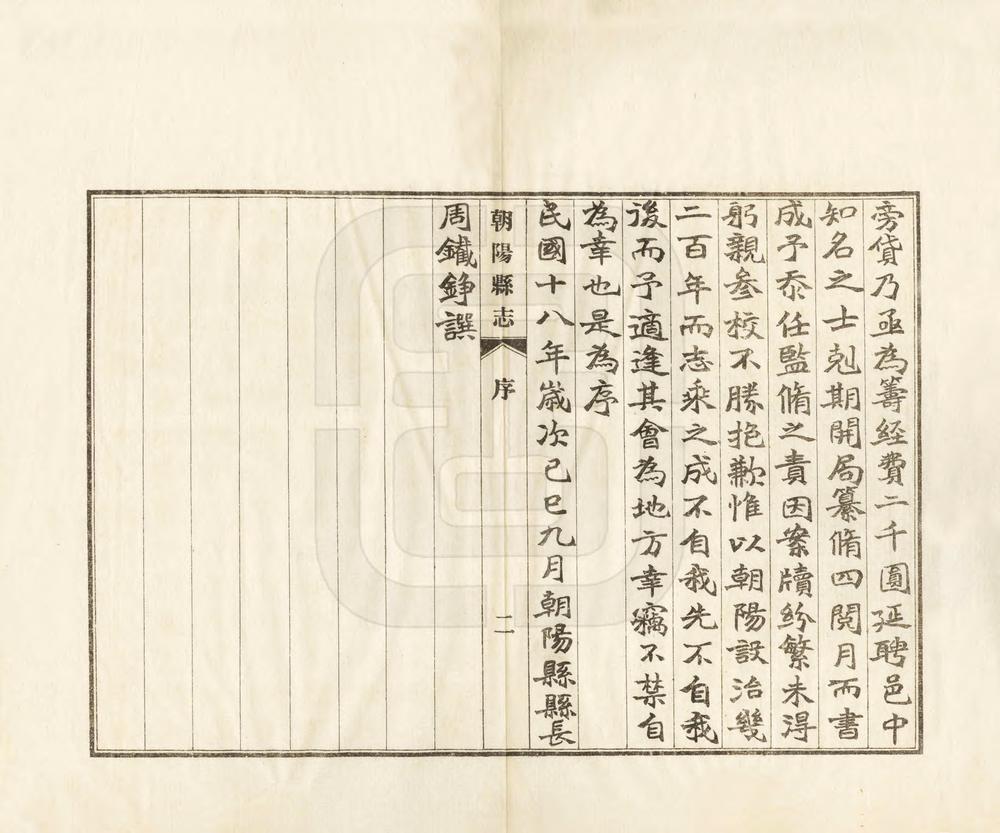 旁貸乃亟為籌經費二千圓延聘邑中
知名之士剋期開局纂脩四閱月而書
成予忝任監脩之責因案牘紛繁未得
躬親參校不勝抱歉惟以朝陽設治幾
二百年而志乘之成不自我先不自我
後而予適逢其會為地方幸竊不禁自
為幸也是為序
民國十八年歲次己巳九月朝陽縣縣長
朝陽縣志 序 二
周鐵錚譔